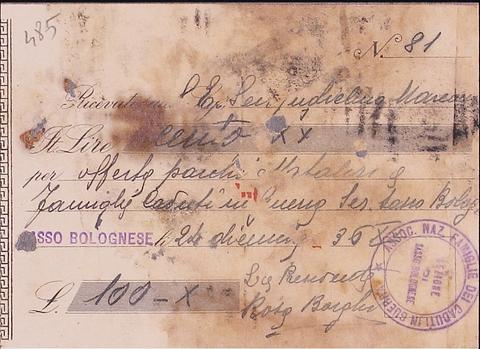 485
N. 81
Ricevute S. Ecc. Sen. Guglielmo Marconi
It Lire cento xx
per offerta pacchi Natalizi
Famiglie Caduti in Guerra Sez. Sasso Bologn
SASSO BOLOGNESE li 24 dicemb. 36 X
£. 100 - x
La Presidente
Rosa Borghi
ASSOC. NAZ. FAMIGLIE DEI CADUTI IN GUERRA
SEZIONE
DI
SASSO BOLOGNESE